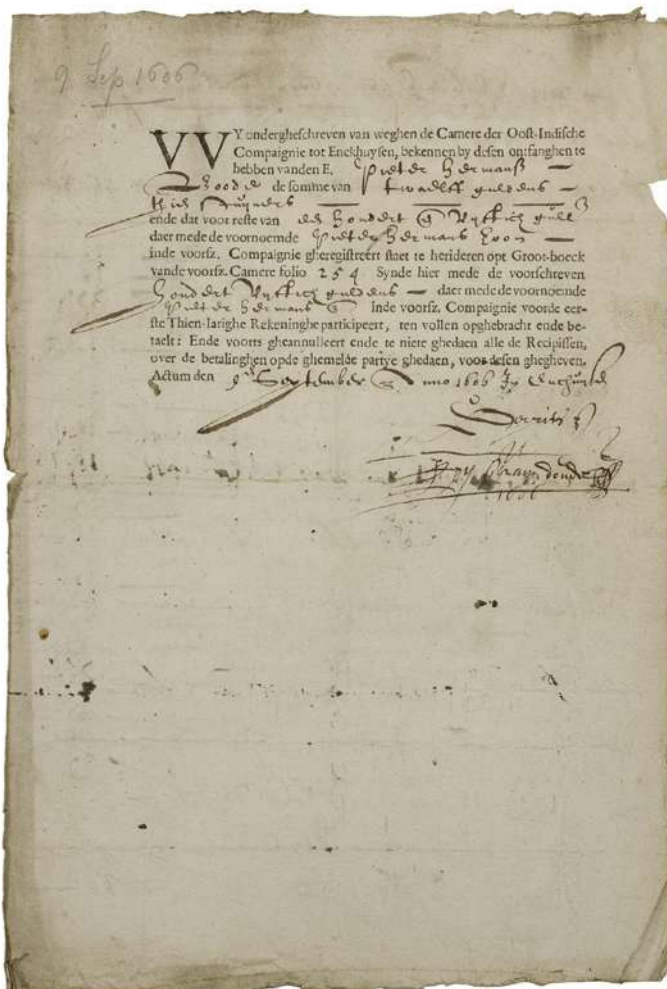 9 Sep 1606
VVY ondergheschreven van weghen de Camere der Oost-Indische
Compaignie tot Enckhuysen, bekennen by desen ontfanghen te
hebben vanden E, Pieter hermansz
de somme van twaelff guldens
thien stuyvers
ende dat voor reste van een hondert vyftich gull
daer mede de voornoemde Pieter hermans
inde voorsz. Compaignie gheregistreert staet te herideren opt Groot-boeck
vande voorsz. Camere folio 254. Synde hier mede de voorschreven
hondert vyftich guldens daer mede de voornoeinde
Pieter hermans inde voorsz. Compaignie voorde eer-
ste Thien-Iarighe Rekeninghe participeert, ten vollen opghebracht ende be-
taelt: Ende voorts gheannulleert ende te niete ghedaen alle de Recipissen,
over de betalinghen opde ghemelde partye ghedaen, voor desen ghegheven.
Actum den 9 September Anno 1606
1606